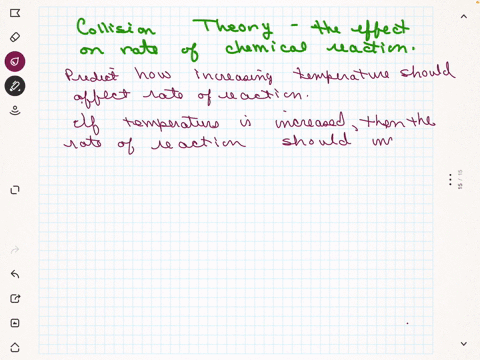 Collision Theory - the effect
on rate of chemical reaction.
Predict how increasing temperature should
affect rate of reaction.
If temperature is increased, then the
rate of reaction should in
15 / 15